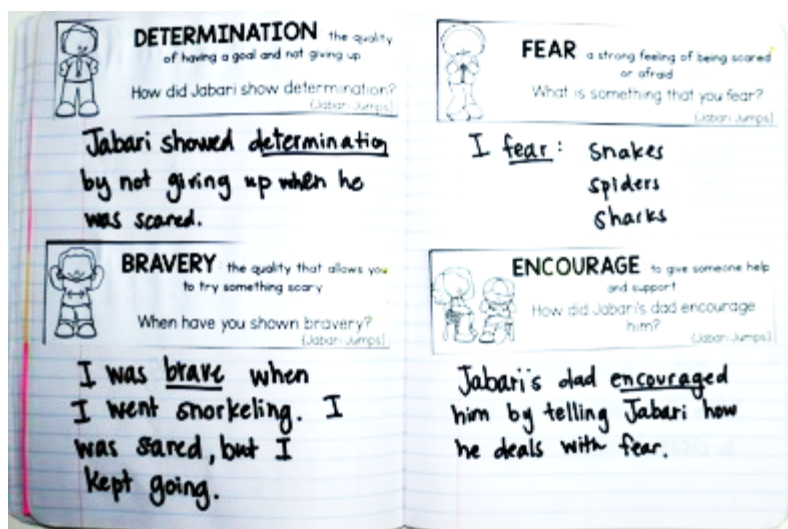 DETERMINATION the quality
of having a goal and not giving up
How did Jabari show determination?
(Jabari Jumps)
Jabari showed determination
by not giving up when he
was scared.
BRAVERY the quality that allows you
to try something scary
When have you shown bravery?
(Jabari Jumps)
I was brave when
I went snorkeling. I
was sared, but I
kept going.
FEAR a strong feeling of being scared
or afraid
What is something that you fear?
(Jabari Jumps)
I fear: snakes
spiders
sharks
ENCOURAGE to give someone help
and support
How did Jabari's dad encourage
him?
(Jabari Jumps)
Jabari's dad encouraged
him by telling Jabari how
he deals with fear.